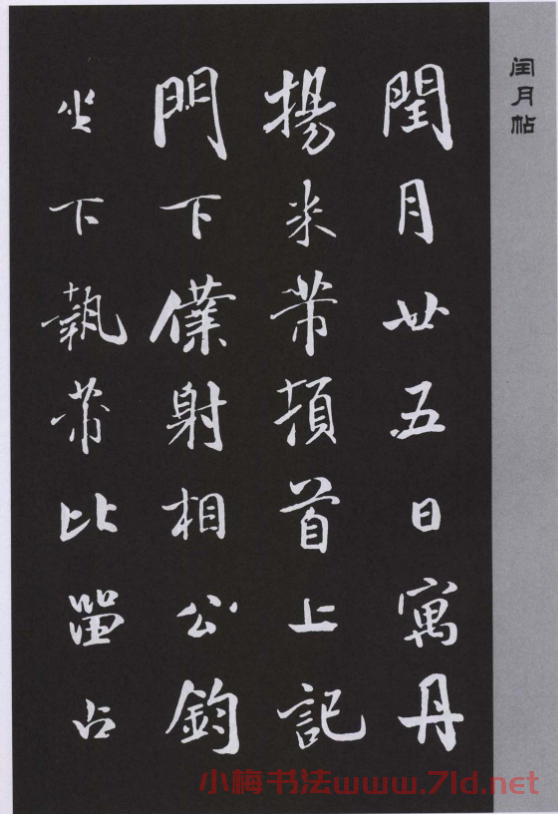 闰月帖
閏月廿五日寓丹
揚米芾頓首上記
門下僕射相公鈞
坐下執芾比畱占
小梅书法www.7ld.net